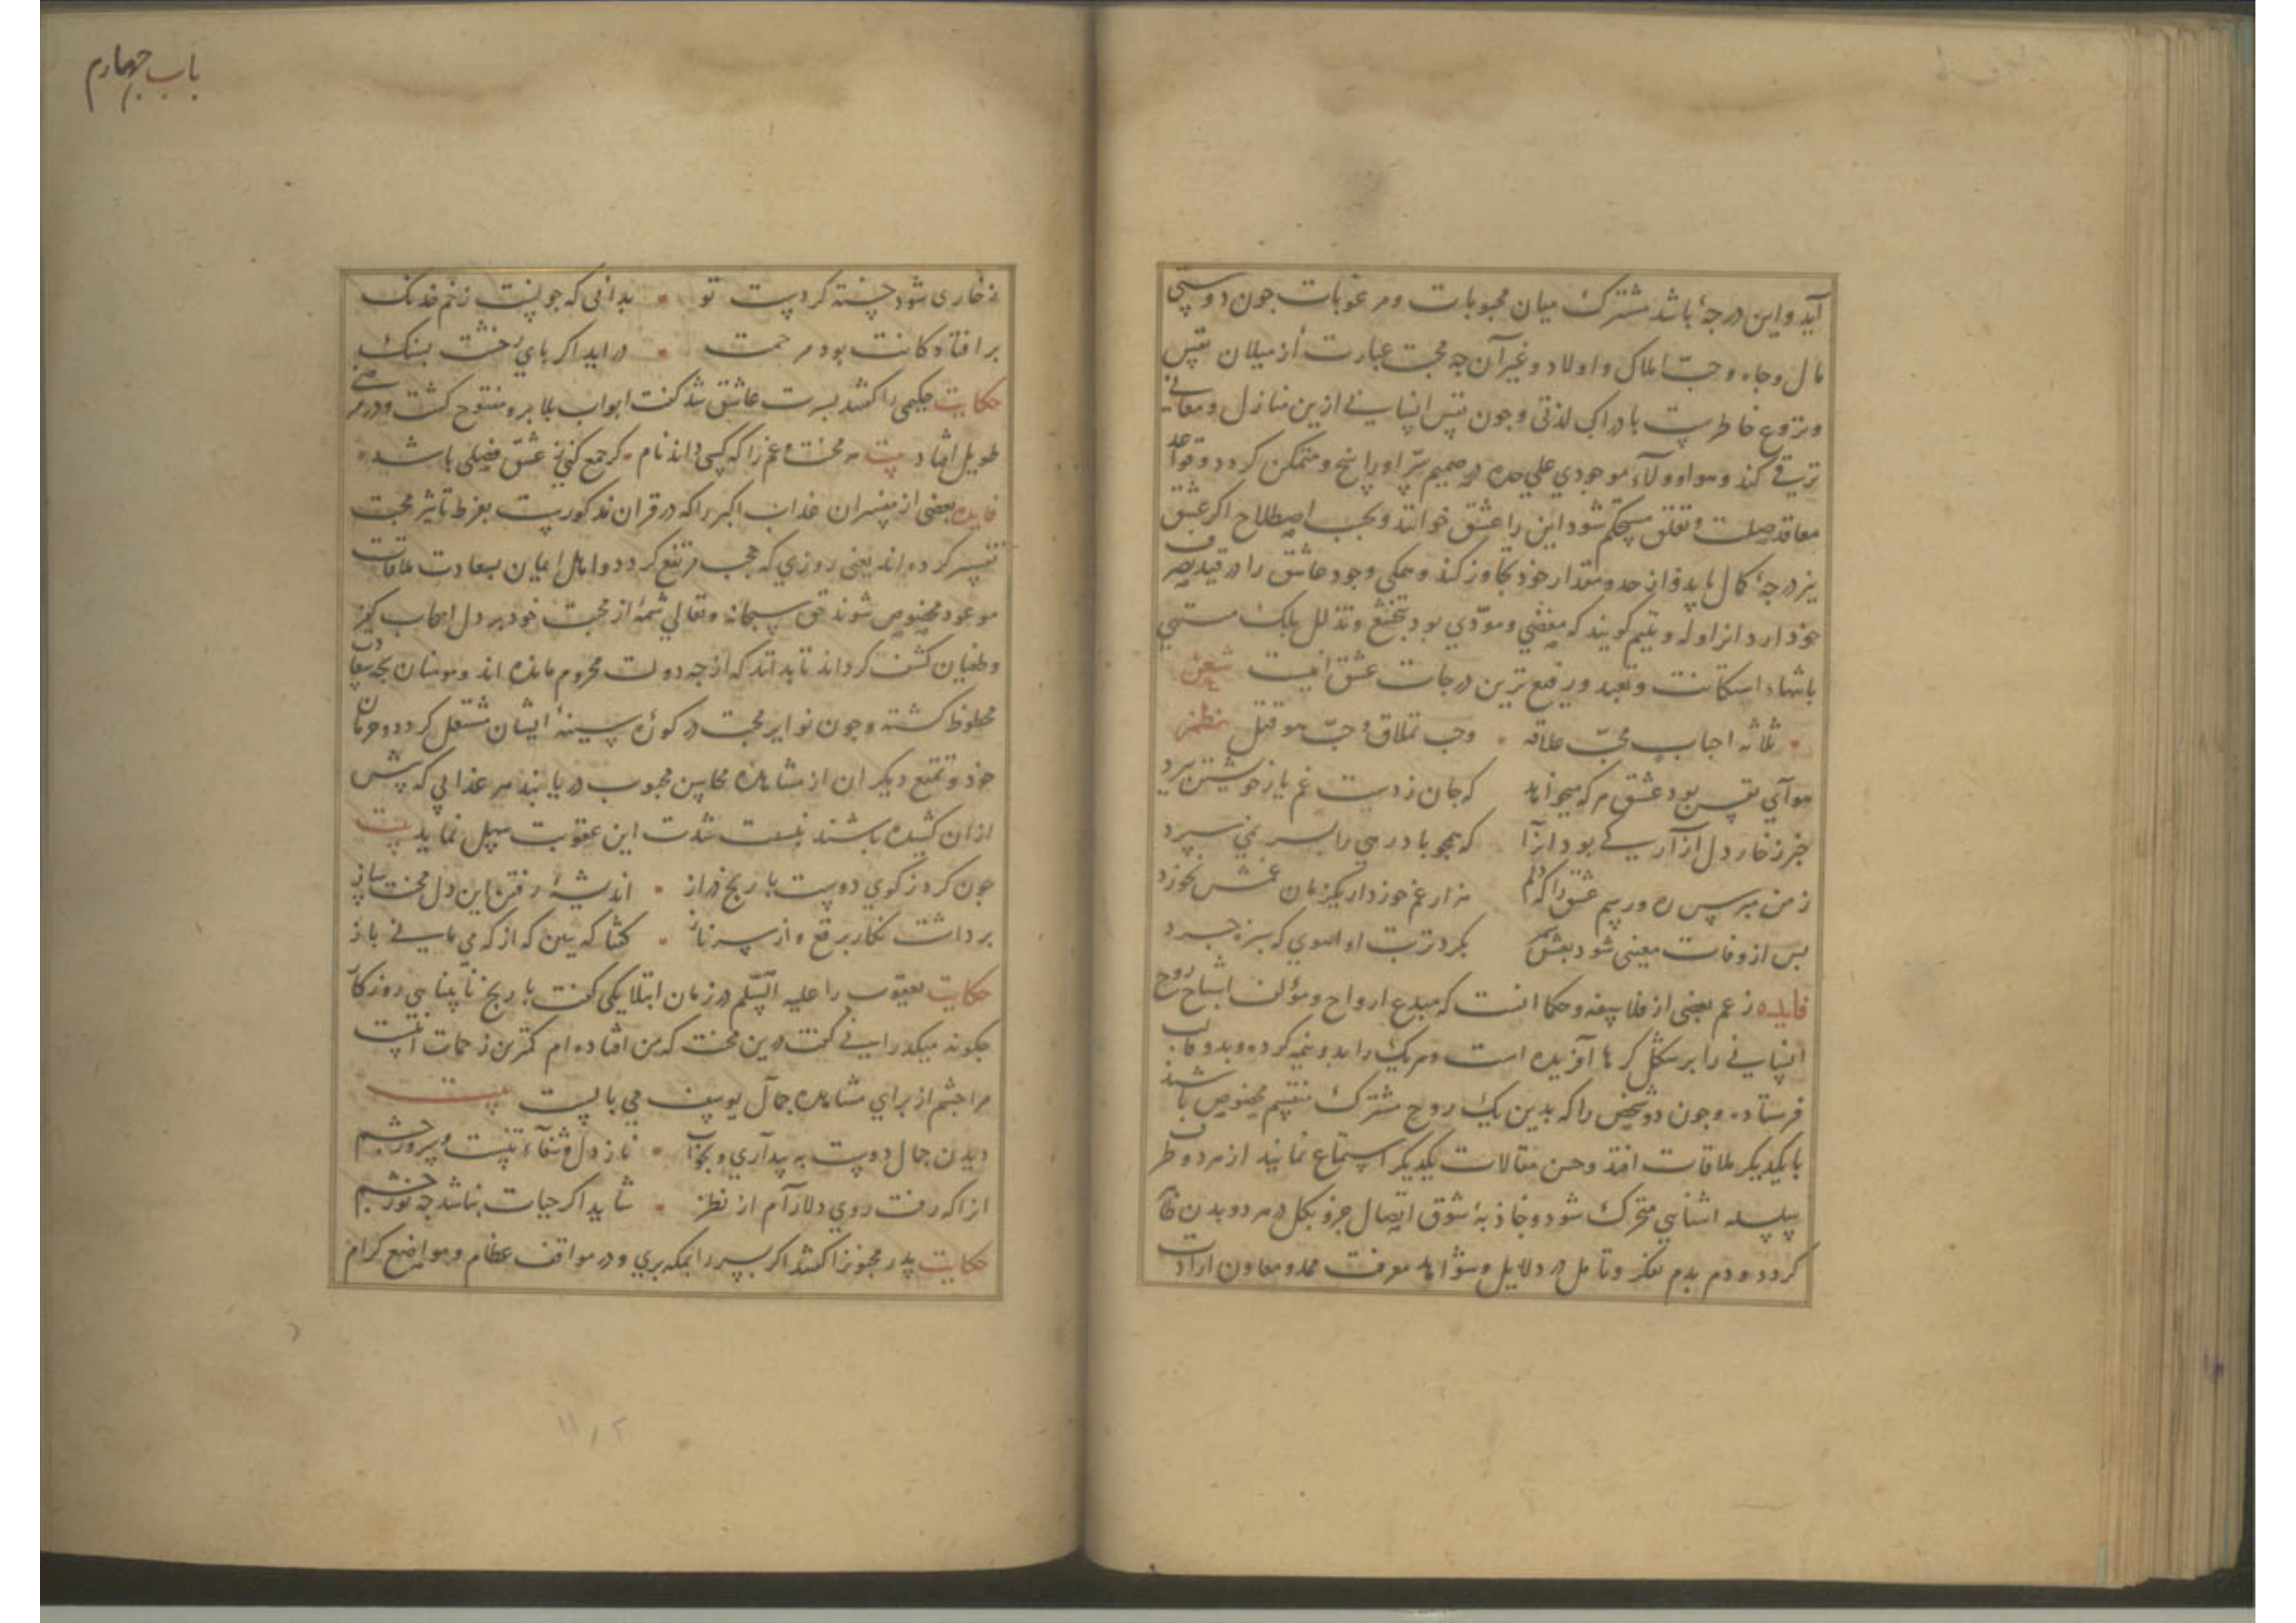 آید و این درجهٔ باشد مشترک میان محبوبات و مرغوبات جون دوستی
مال و جاه و حبّ املاک و اولاد و غیر آن جه محبت عبارت از میلان نفس
و نزوع خاطرست بادراک لذتی و جون نفس انسانی ازین منازل و معانی
ترقی کند و هوا و ولآء موجودی علی حده در صمیم سرّ او راسخ و متمکن کردد و قواعد
معاقد صلت و تعلق مستحکم شود این را عشق خوانند و بحسب اصطلاح اکر عشق
بزدرجهٔ کمال یابد و از حد و مقدار خود تجاوز کند و همکی وجود عاشق را در قید تصرف
خود ارد انرا وله و تتیم کویند که مفضی و مودّی بود بتخشع و تذلل بلک منتهی
باشد باستکانت و تعبد و رفیع ترین درجات عشق اینست شعر
ثلاثه احباب فحبّ علاقه • وحب تملاق و حبّ هو قتل نظم
هوآی نفس بود عشق هرکه میخواهد که جان ز دست غم یار خویشتن ببرد
خبر ز خار دل ازار کی بود انرا که همجو باد رهی را بسر نمی سپرد
ز من مپرس ره و رسم عشق را که دلم هزار غم خورد ار یکزمان غمش نخورد
بس از وفات معینی شود بعشق بکرد تربت او اهوی که سبزه جرد
فایده زعم بعضی از فلاسفه و حکما انست که مبدع ارواح و مؤلف اشباح روح
انسانی را بر شکل کرها آفریده است و هر یک را بدو نیمه کرده و بدو قالب
فرستاده و جون دو شخص را که بدین یک روح مشترک منقسم مخصوص باشند
با یکدیکر ملاقات افتد و حسن مقالات یکدیکر استماع نمایند از هر دو طرف
سلسله اشنایی متحرک شود و جاذبهٔ شوق اتصال جزو بکل در هر دو بدن
کردد و دم بدم تفکر و تامل در دلایل و شواهد معرفت ممد و معاون ارادت
باب جهارم
ز خاری شود خسته کر دست تو • بدانی که جونست زخم خدنک
بر افتادکانت بود مرحمت • در اید اکر بای رخشت بسنک
حکایت حکیمی را کفتند بسرت عاشق شد کفت ابواب بلا برو مفتوح کشت و در مرضی
طویل افتاد بیت هر محنت و غم را که کسی داند نام • کر جمع کنی ز عشق فصلی باشد •
فایده بعضی از مفسران عذاب اکبر را که در قران مذکورست بفرط تاثیر محبت
تفسیر کرده اند یعنی روزی که حجب مرتفع کردد و اهل ایمان بسعادت ملاقات
موعود مخصوص شوند حق سبحانه و تعالی شمهٔ از محبت خود بر دل اصحاب کفر
و طغیان کشف کرداند تا بدانند که از جه دولت محروم مانده اند و مومنان بجه سعادت
محظوظ کشته و جون نوایر محبت در کورهٔ سینهٔ ایشان مشتعل کردد و حرمان
خود و تمتع دیکران از مشاهده محاسن محبوب دریابند هر عذابی که پیش
ازان کشیده باشند بنسبت شدت این عقوبت سهل نماید بیت
جون کرد ز کوی دوست با رنج دراز • اندیشهٔ رفتن این دل محنت ساز
برداشت نکار برقع و از سر ناز • کفتا که ببین که از که می مانی باز
حکایت یعقوب را علیه السّلم در زمان ابتلا یکی کفت با رنج نابینایی روزکار
جکونه میکذرانی کفت درین محنت که من افتاده ام کمترین زحمات اینست
مرا جشم از برای مشاهده جمال یوسف می بایست بیت
دیدن جمال دوست به بیداری و بخواب • ناز دل و شفآء تنست و سرور جشم
انرا که رفت روی دلارآم از نظر • شاید اکر حیات نباشد جه نور جشم
حکایت پدر مجنونرا کفتند اکر پسر را بمکه بری و در مواقف عظام و مواضع کرام